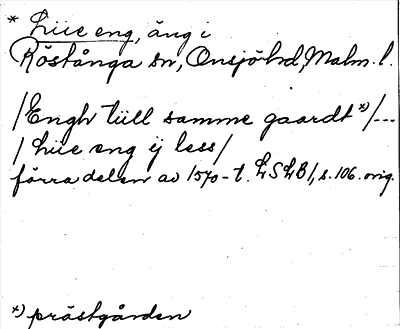 * Liie eng, äng i
Röstånga sn, Onsjö hd, Malm. l.
/Engh tiill samme gaardt *)/---
/ Liie eng ij less/
förra delen av 1570-t. LSLB 1, s. 106. orig.
*) prästgården